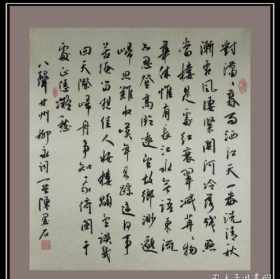 對瀟瀟暮雨洒江天一番洗清秋
漸霜風凄緊關河冷落殘照
當樓是處紅衰翠減苒苒物
華休惟有長江水無語東流
不忍登高臨遠望故鄉渺邈
歸思難收嘆年來蹤跡何事
苦淹留想佳人妝樓顒望誤幾
回天際歸舟爭知我倚闌干
處正恁凝愁
八聲甘州柳永詞